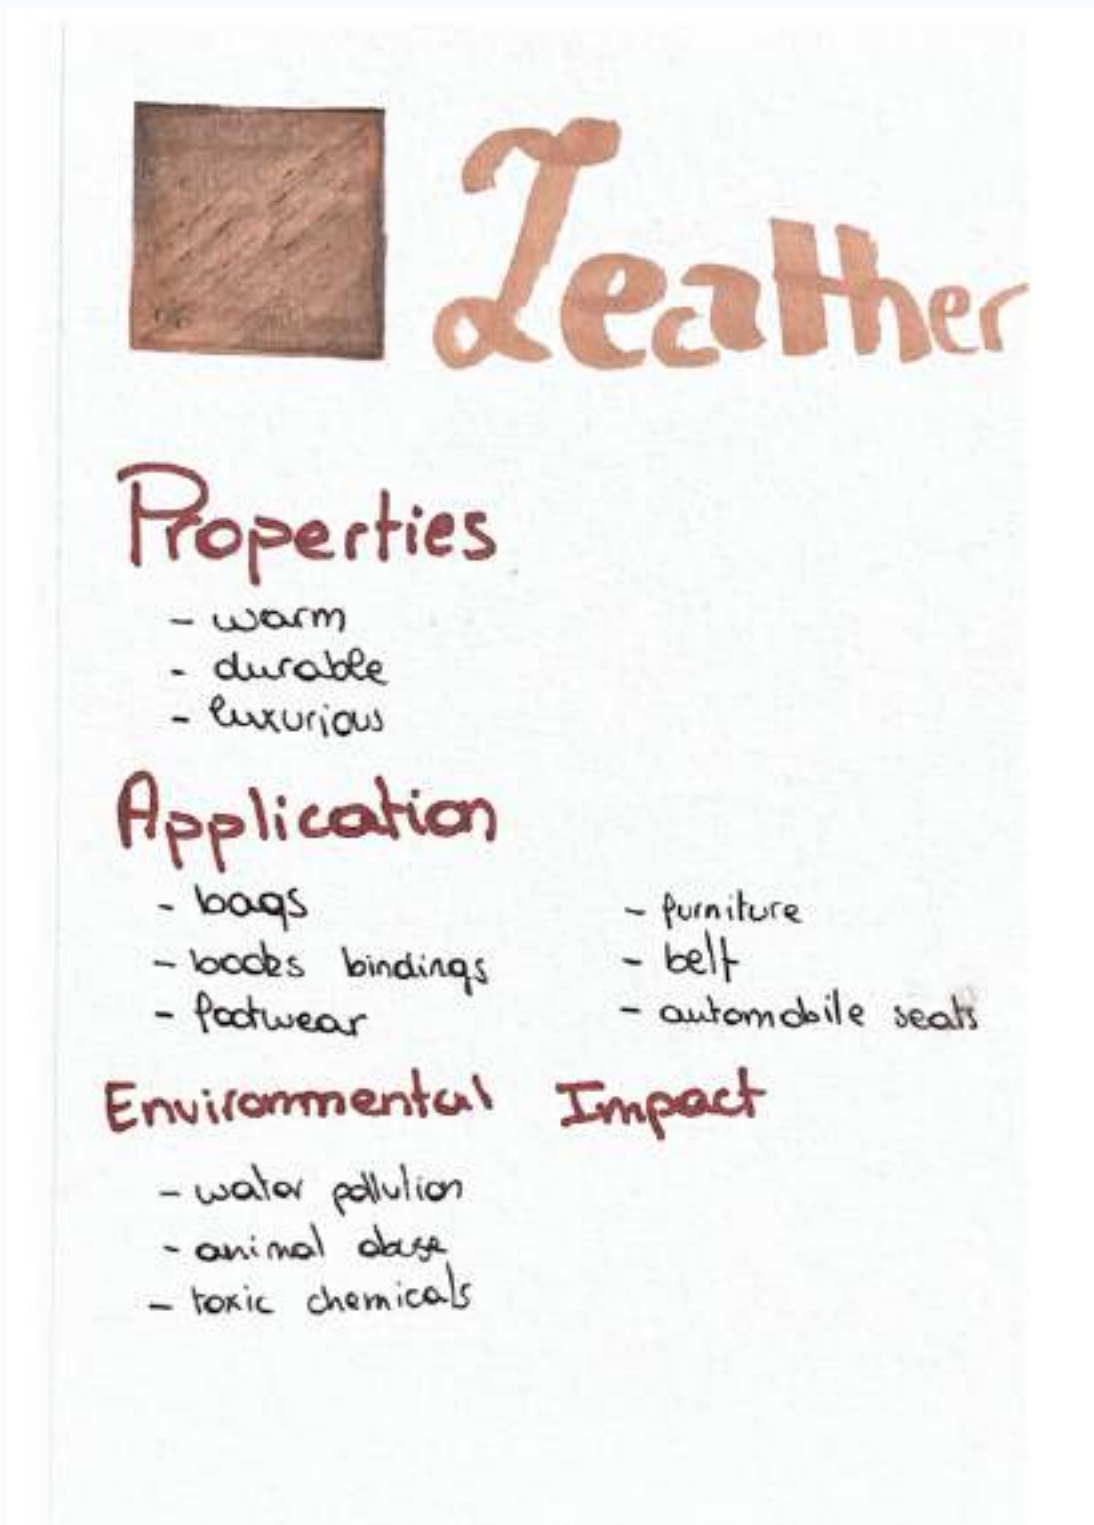 Leather
Properties
- warm
- durable
- luxurious
Application
- bags
- books bindings
- footwear
- furniture
- belt
- automobile seats
Environmental Impact
- water pollution
- animal abuse
- toxic chemicals